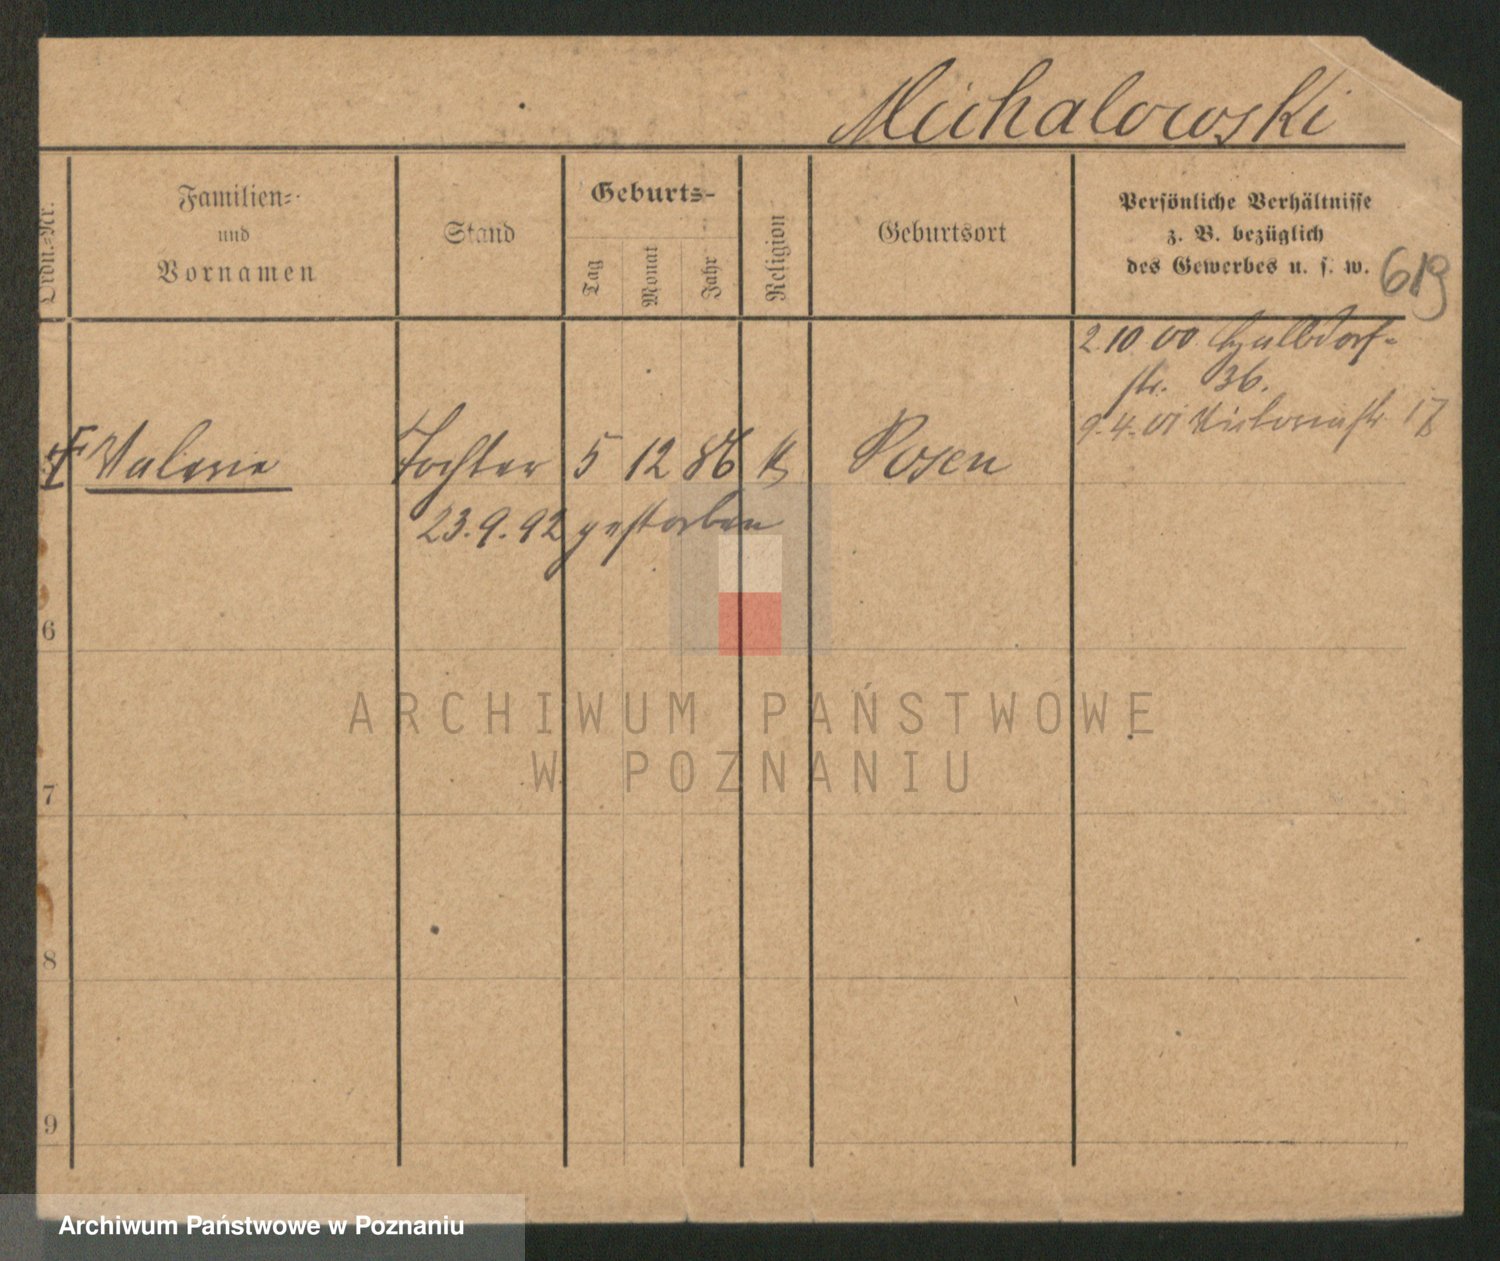 Michalowski
Ordn.-Nr.
Familien-
und
Vornamen
Stand
Geburts-
Tag
Monat
Jahr
Religion
Geburtsort
Persönliche Verhältnisse
z. B. bezüglich
des Gewerbes u. s. w.
619
2.10.00
str. 36.
9.4.01 Victoriastr 17
Valerie Tochter 5 12 86 k Posen
23.9.92 gestorben
6
ARCHIWUM PAŃSTWOWE
W POZNANIU
7
8
9
Archiwum Państwowe w Poznaniu